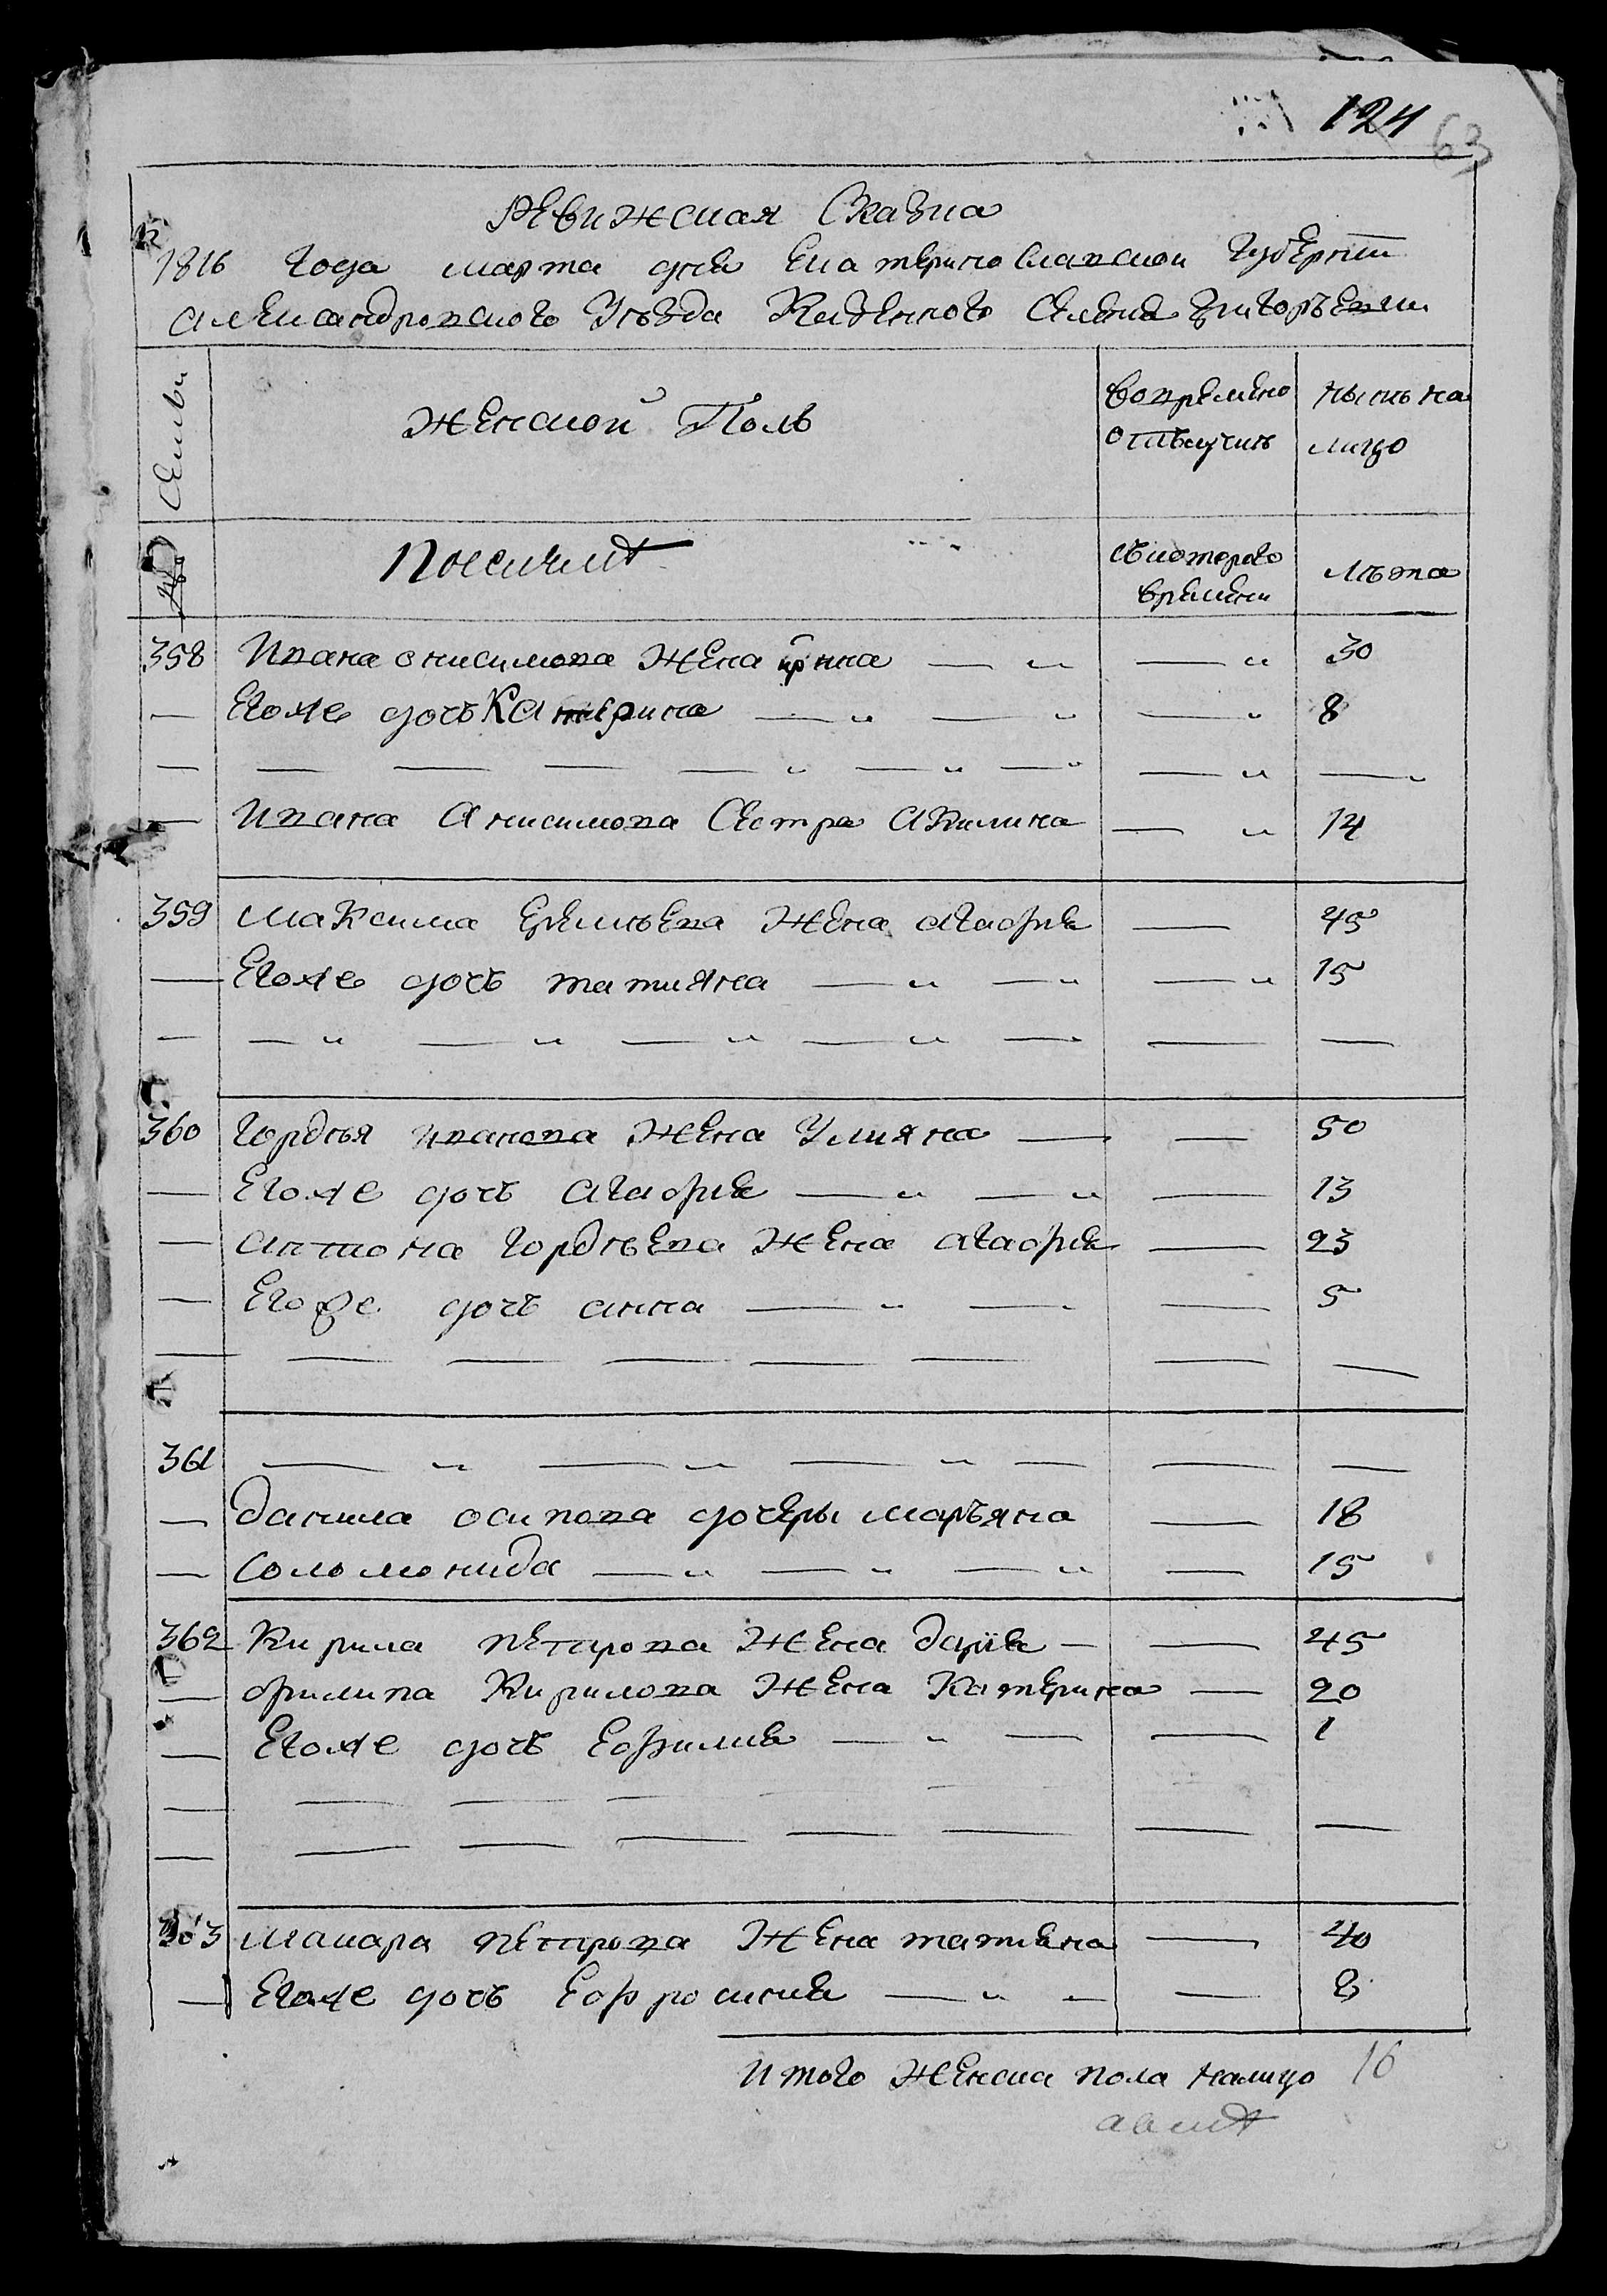 124 63
Ревижская Сказка
1816 года марта дня Екатеринославской Губернии
александровского Уезда Казенного Селения Григорьевки
Семьи
Женской Полъ
вовремено отлучкѣ
нынѣ на лицо
№
съкоторого времени
лѣта
358 Ивана онисимова Жена ирина — „ — „ 30
— Егоже дочь Катерина — „ — „ — „ 8
— — — — — „ — „ — „ — „ — „
— Ивана Анисимова Сестра Акилина — „ 14
359 Максима Еремѣева Жена агафия — 45
— Егоже дочь татияна — „ — „ — „ 15
— — „ — „ — „ — „ — — —
360 Гордѣя иванова Жена Улияна — — 50
— Егоже дочь агафия — „ — „ — 13
— антона Гордѣева Жена агафия — 23
— Егоже дочь анна — „ — „ — 5
— — — — — — — —
361 — „ — „ — „ — — —
— данила осипова дочеры маръяна — 18
— соломонида — „ — „ — „ — 15
362 Кирила петрова Жена дария — — 45
— филипа Кирилова Жена Катерина — 20
— Егоже дочь Ефимия — „ — — 1
— — — — — —
— — — — — — — —
363 макара петрова Жена татияна — 40
— Егоже дочь Ефросиния — „ — — 8
итого женска пола налицо 16